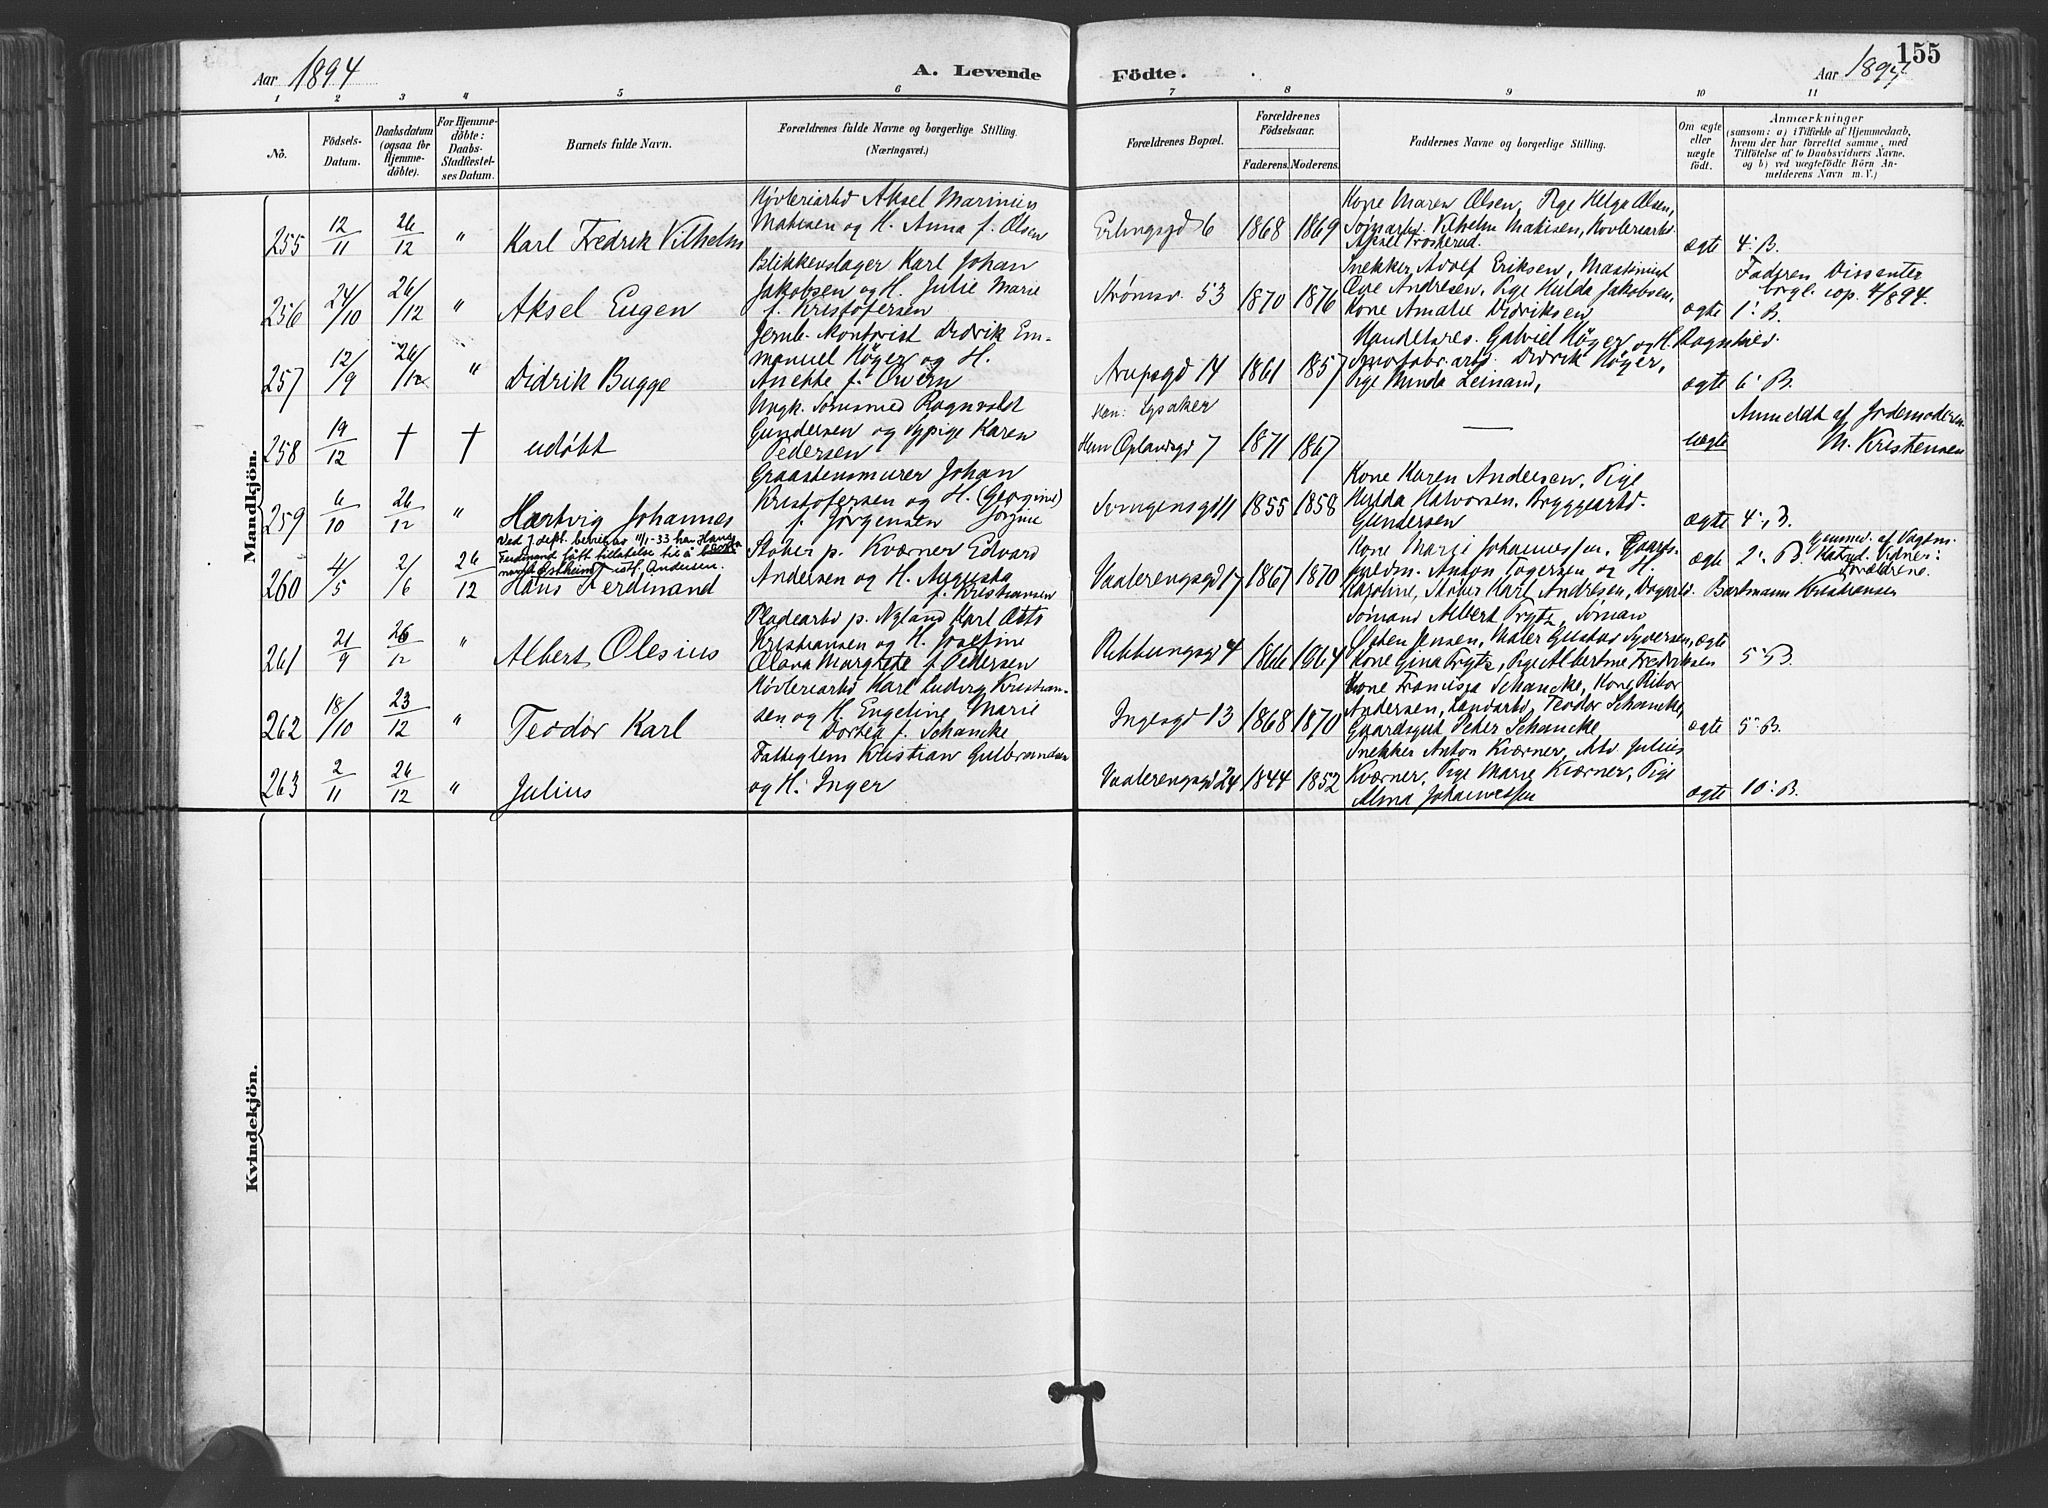 155
Aar 1894
A. Levende Födte.
Aar 1894
1 2 3 4 5 6 7 8 9 10 11
No.
Födsels-Datum.
Daabsdatum (ogsaa for Hjemme-döbte).
For Hjemme-döbte: Daabs-Stadfæstel-ses Datum.
Barnets fulde Navn.
Forældrenes fulde Navne og borgerlige Stilling.
(Næringsvei.)
Forældrenes Bopæl.
Forældrenes Födselsaar.
Faderens. Moderens.
Faddernes Navne og borgerlige Stilling.
Om ægte eller uægte födt.
Anmærkninger
(saasom: a) i Tilfælde af Hjemmedaab,
hvem der har forrettet samme, med
Tilföielse af to Daabsvidners Navne.
og b) ved uægtefödte Börn An-
melderens Navn m. V.)
Mandkjön.
255 12/11 26/12 " Karl Fredrik Vilhelm
Høvleriarbd Aksel Marinius
Matisen og H. Anna f. Olsen
Erlingsgd 6 1868 1869
Kone Maren Olsen, Pige Helga Olsen,
Sømarb. Vilhelm Matisen, Høvleriarbd.
Aksel Froskerud.
ægte 4: B.
256 24/10 26/12 " Aksel Eugen
Blikkenslager Karl Johan
Jakobsen og H. Julie Marie
f. Kristofersen
Strømsv. 53 1870 1876
Snekker Adolf Eriksen, Maskinist
Ove Andresen, Pige Hulda Jakobsen,
Kone Amalie Didriksen
ægte 1: B.
Faderen Dissenter
borgl. cop. 4/8 94.
257 12/9 26/12 " Didrik Bugge
Jernb. Kontorist Didrik Em-
manuel Höger og H.
Anette f. Overn
Arupsgd 14 1861 1857
Handelsres. Gabriel Höger og H. Ragnhild.
Didrik Höger,
Pige Minda Leinand,
ægte 6: B.
258 19/12 † † udøbt
Ungk. Ragnvald
Gundersen og Sypige Karen
Pedersen
Han: Lysaker
Hun Oplandsgd 7 1871 1867 —
uægte
Anmeldt af Jordemoderen
M. Kristensen
259 6/10 26/12 " Hartvig Johannes
Graastensmurer Johan
Kristofersen og H. (Georgine)
f. Jörgensen Jörgine
Svingensgd 11 1855 1858
Kone Karen Andersen, Pige
Hulda Halvorsen, Bryggearbd.
Gundersen
ægte 4: B.
Ved J. dept. bevilg. av 11/1-33 har Hans
Ferdinand fått tillatelse til å bære
navnet Östheim istf. Andersen.
260 4/5 2/6 26/12 Hans Ferdinand
Støber p. Kværner Edvard
Andersen og H. Augusta
f. Kristiansen
Vaalerengsgd 17 1867 1870
Kone Marge Johannessen, Gaards-
Anton Torgersen og H.
Karoline, Støber Karl Andresen,
ægte 2: B.
Bartmann Kristiansen
261 21/9 26/12 " Albert Olesius
Pladearbd p. Nyland Karl Otto
Kristiansen og H. Josefine
Olava Margrete f. Pedersen
Rubbungsgd 4 1866 1864
Sømand Albert Frytz, Sømand
Osten Jensen, Maler Gustav Syversen,
Kone Gina Frytz, Pige Albertine Fredriksen
ægte 5: B.
262 18/10 23/12 " Teodor Karl
Høvleriarbd Karl Ludvig Kristian-
sen og H. Engeline Marie
Dortea f. Schancke
Ingesgd 13 1868 1870
Kone Francisca Schancke, Kone Ribor
Andersen, Landarbd. Teodor Schancke,
Gaardsgut Peter Schancke
ægte 5: B.
263 2/11 26/12 " Julius
Fattiglem Kristian Gulbrandsen
og H. Inger
Vaalerengsgd 24 1844 1852
Snekker Anton Kværner, Arb Julius
Kværner, Pige Marie Kværner, Pige
Alma Johannessen
ægte 10: B.
Kvindekjön.